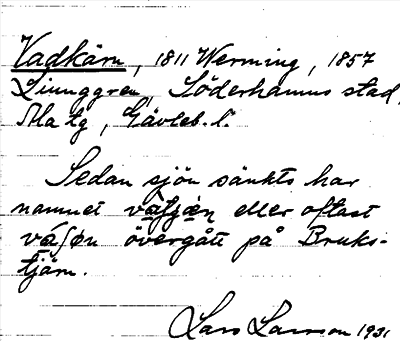 Vadkärn, 1811 Werming, 1857
Ljunggren, Söderhamns stad,
Ala tg, Gävleb. l.
Sedan sjön sänkts har
namnet eller oftast
övergått på Bruks-
tjärn.
Lars Larsson 1931